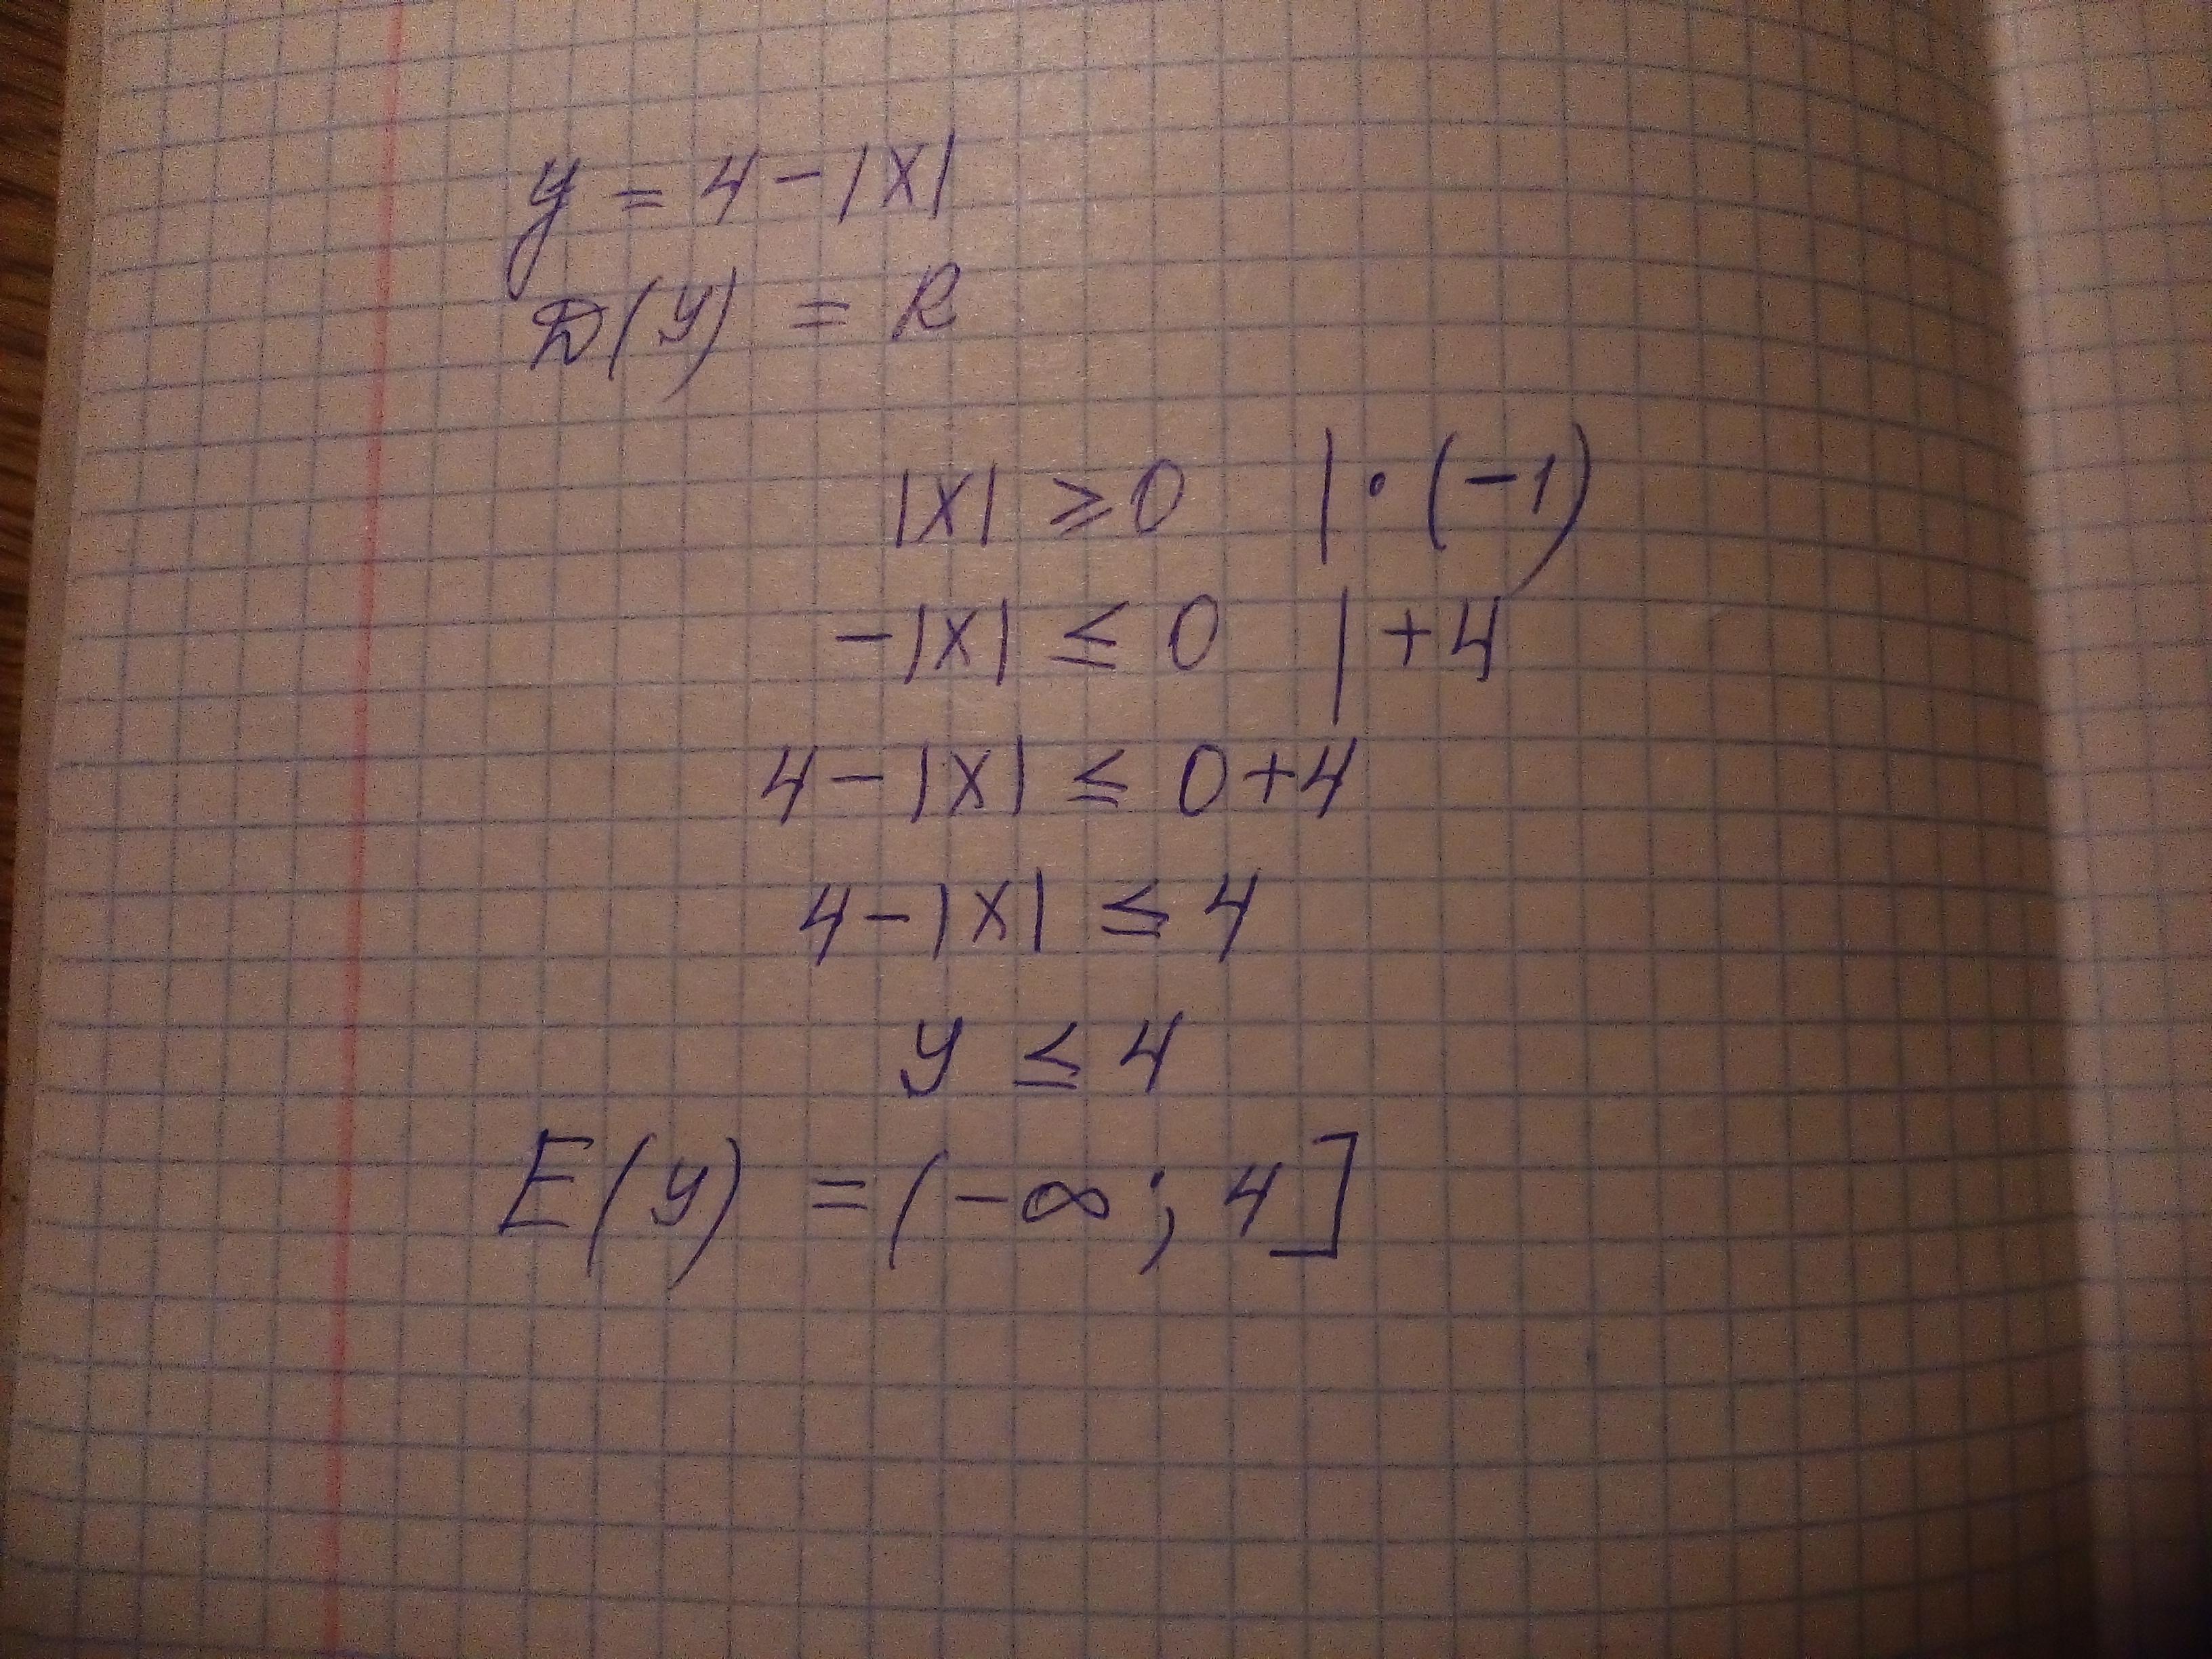 y = 4 - |x|
D(y) = R
|x| ⩾ 0 | • (-1)
-|x| ≤ 0 | +4
4 - |x| ≤ 0 + 4
4 - |x| ≤ 4
y ≤ 4
E(y) = (-∞; 4]